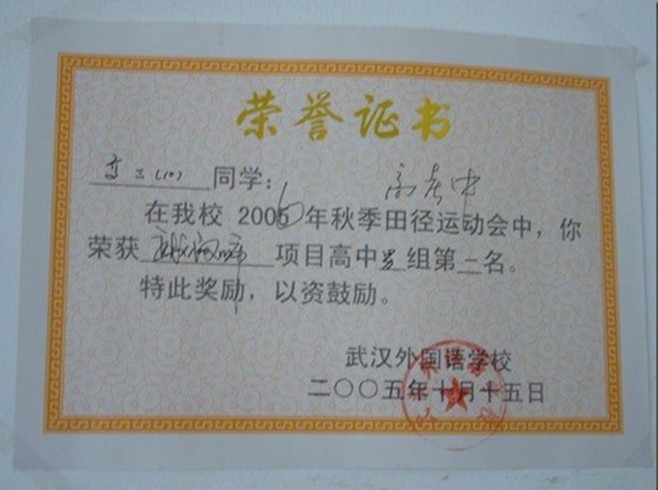 荣誉证书
高三(10)同学:
在我校 2006年秋季田径运动会中,你
荣获 项目高中男组第一名。
特此奖励,以资鼓励。
武汉外国语学校
二〇〇五年十月十五日